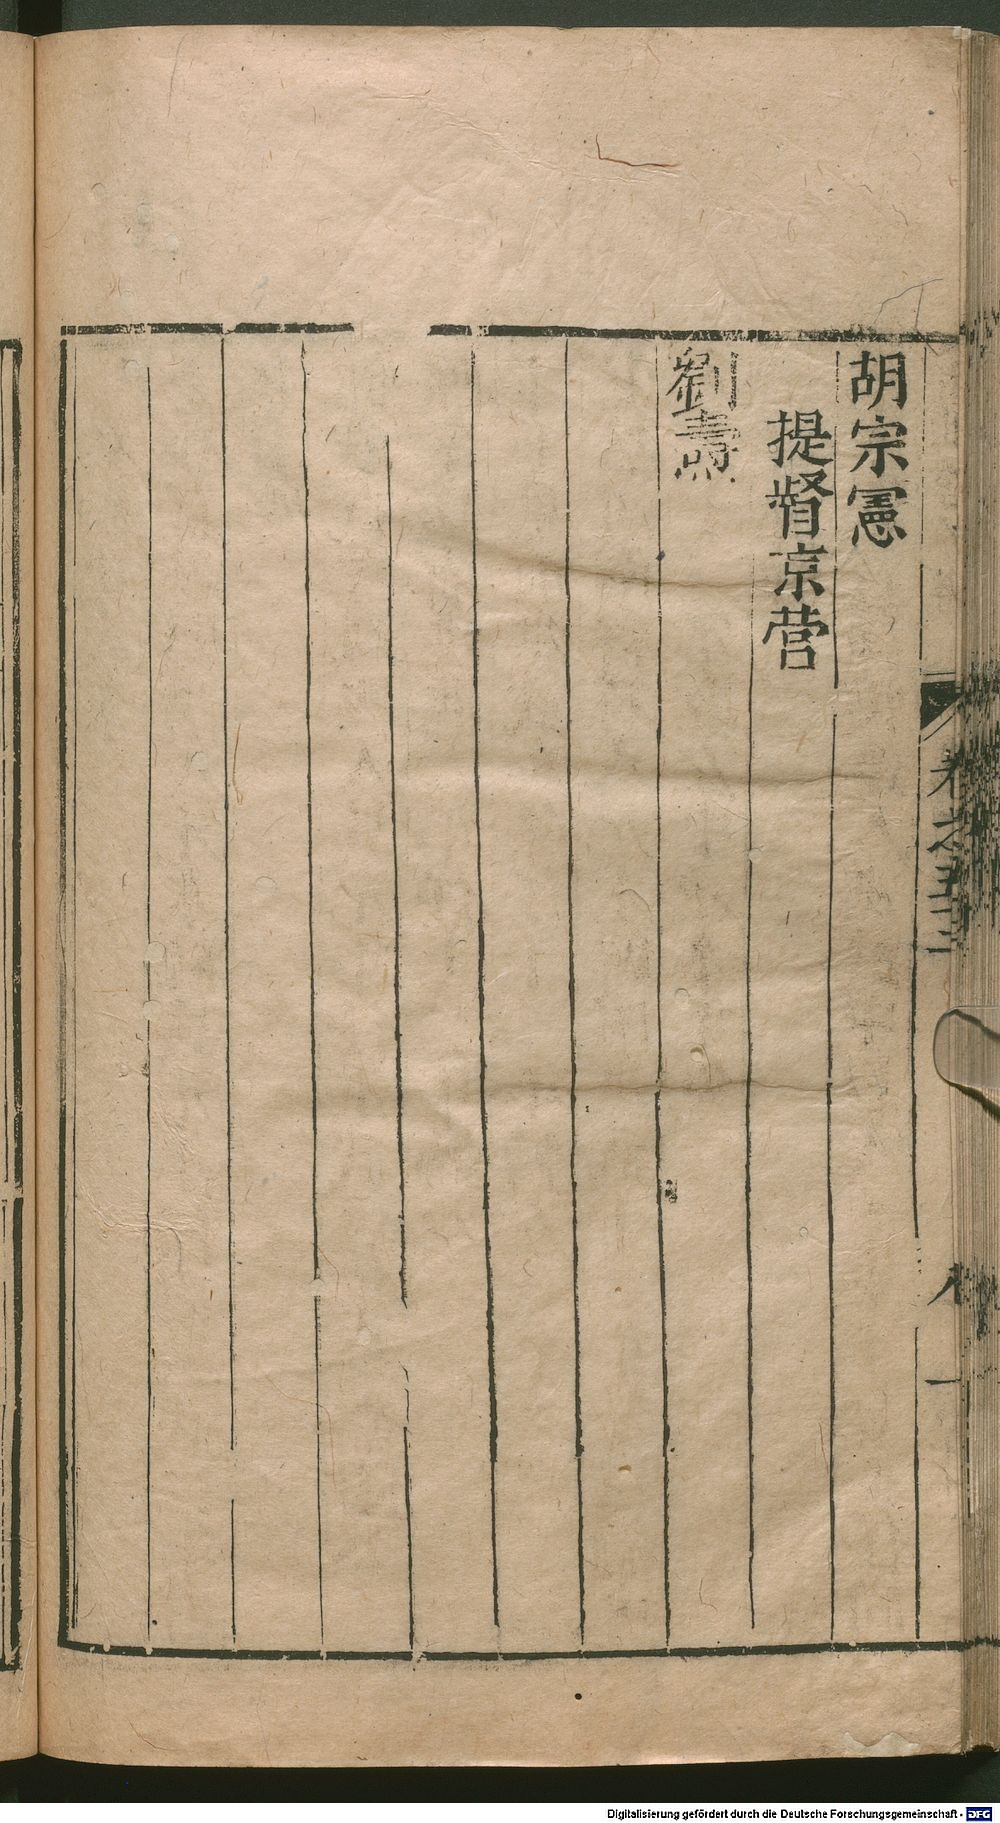 胡宗憲
提督京营
劉燾
卷之五十三
Digitalisierung gefördert durch die Deutsche Forschungsgemeinschaft - DFG